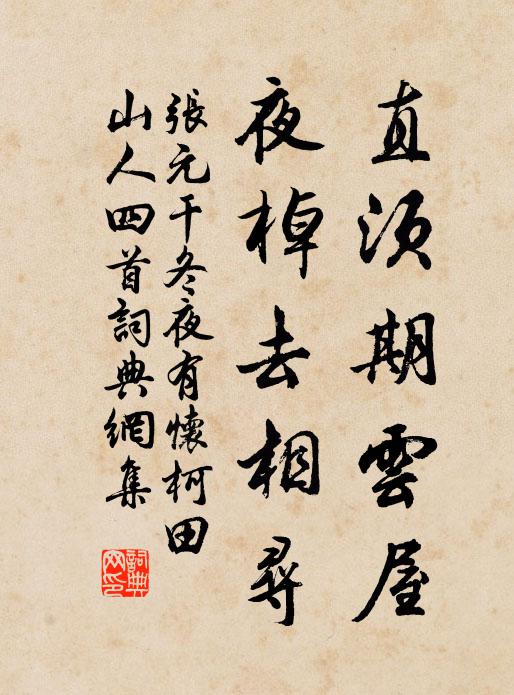 直須期雲屋
夜棹去相尋
張元干冬夜有懷柯田
山人四首詞典網集
詞典
网印